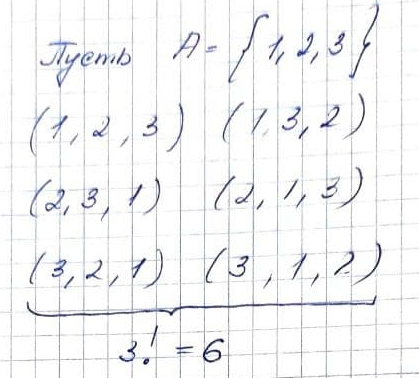 Пусть A = {1, 2, 3}
(1, 2, 3) (1, 3, 2)
(2, 3, 1) (2, 1, 3)
(3, 2, 1) (3, 1, 2)
3! = 6